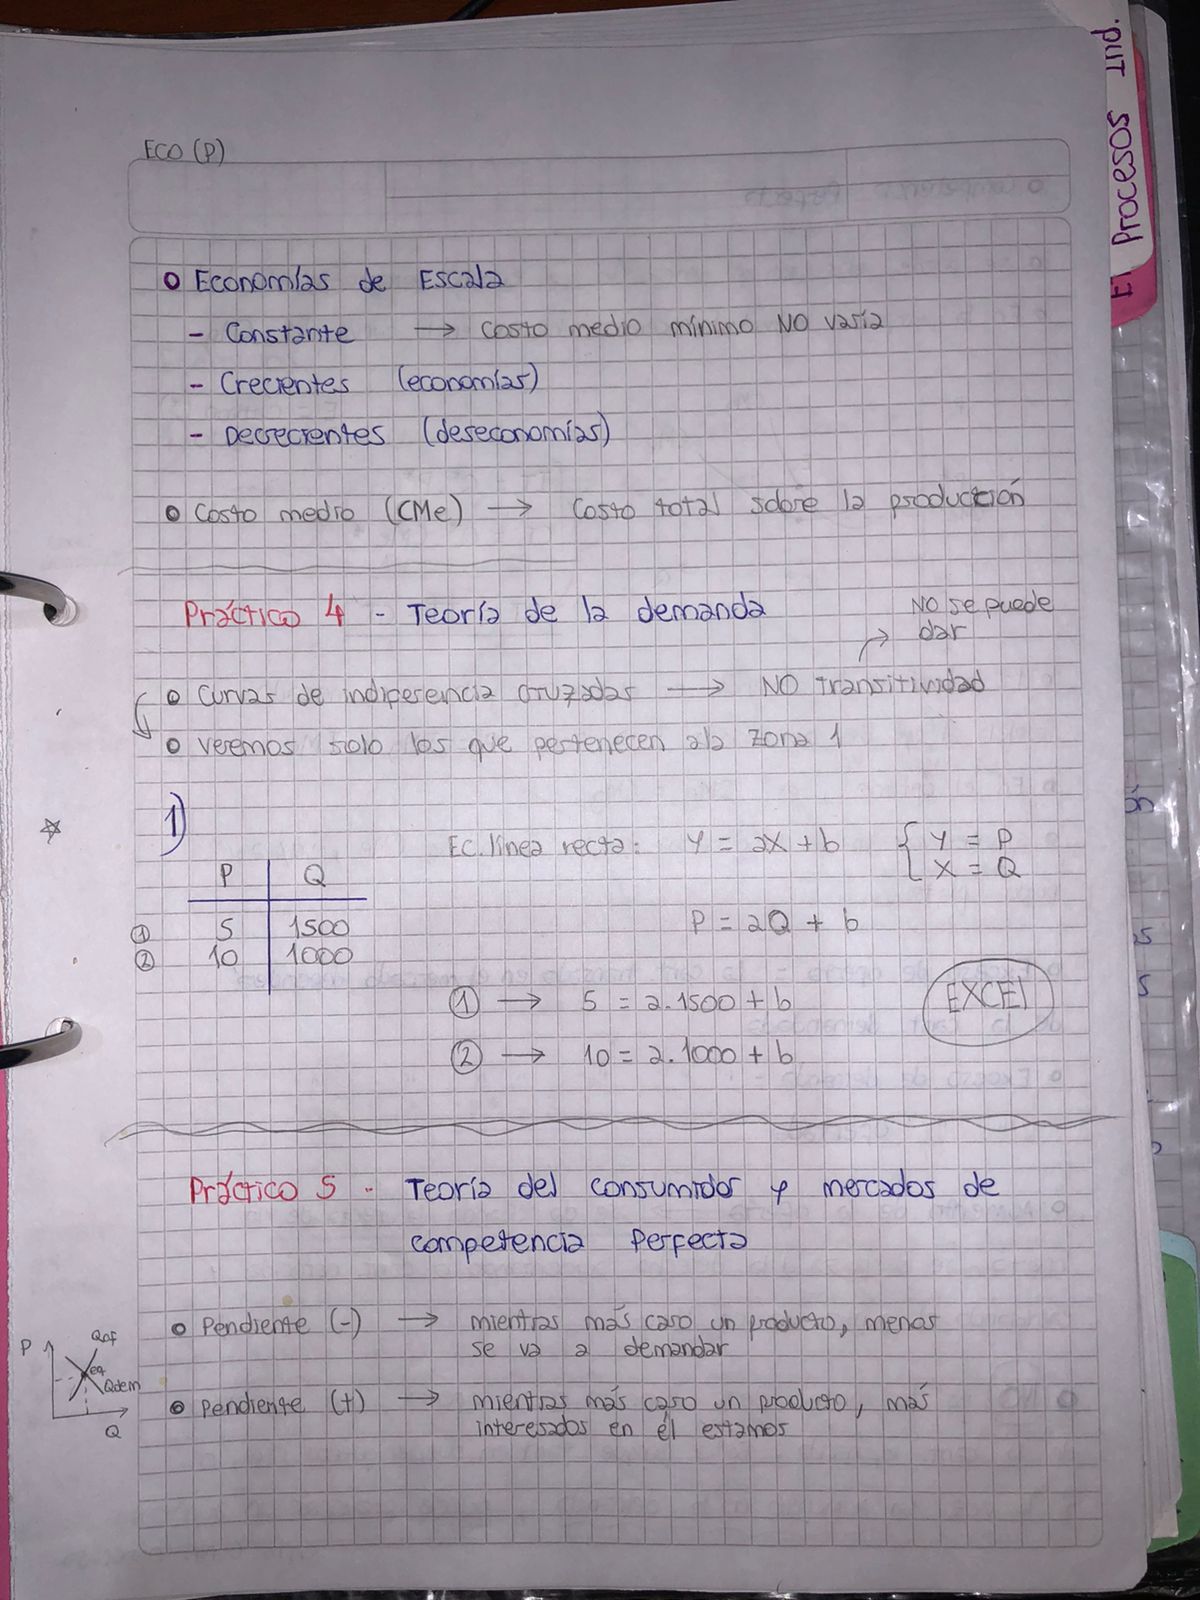 ECO (P)
Procesos Ind.
o Economías de Escala
- Constante → Costo medio mínimo NO varía
- Crecientes (economías)
- Decrecientes (deseconomías)
o Costo medio (CMe) → Costo total sobre la producción
Práctico 4 - Teoría de la demanda
NO se puede
dar
o Curvas de indiferencia cruzadas → NO transitividad
o Veremos solo los que pertenecen a la zona 1
1)
Ec. línea recta: y = ax + b { y = P
x = Q
P Q
P = aQ + b
① 5 1500
② 10 1000
① → 5 = a.1500 + b
EXCEl
② → 10 = a.1000 + b
Práctico 5 - Teoría del consumidor y mercados de
competencia Perfecta
o Pendiente (-) → mientras más caro un producto, menos
se va a demandar
P Qof
eq
Qdem
Q
o Pendiente (+) → mientras más caro un producto, más
interesados en él estamos